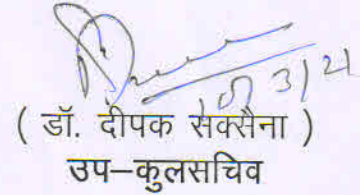 ( डॉ. दीपक सक्सैना )
उप–कुलसचिव